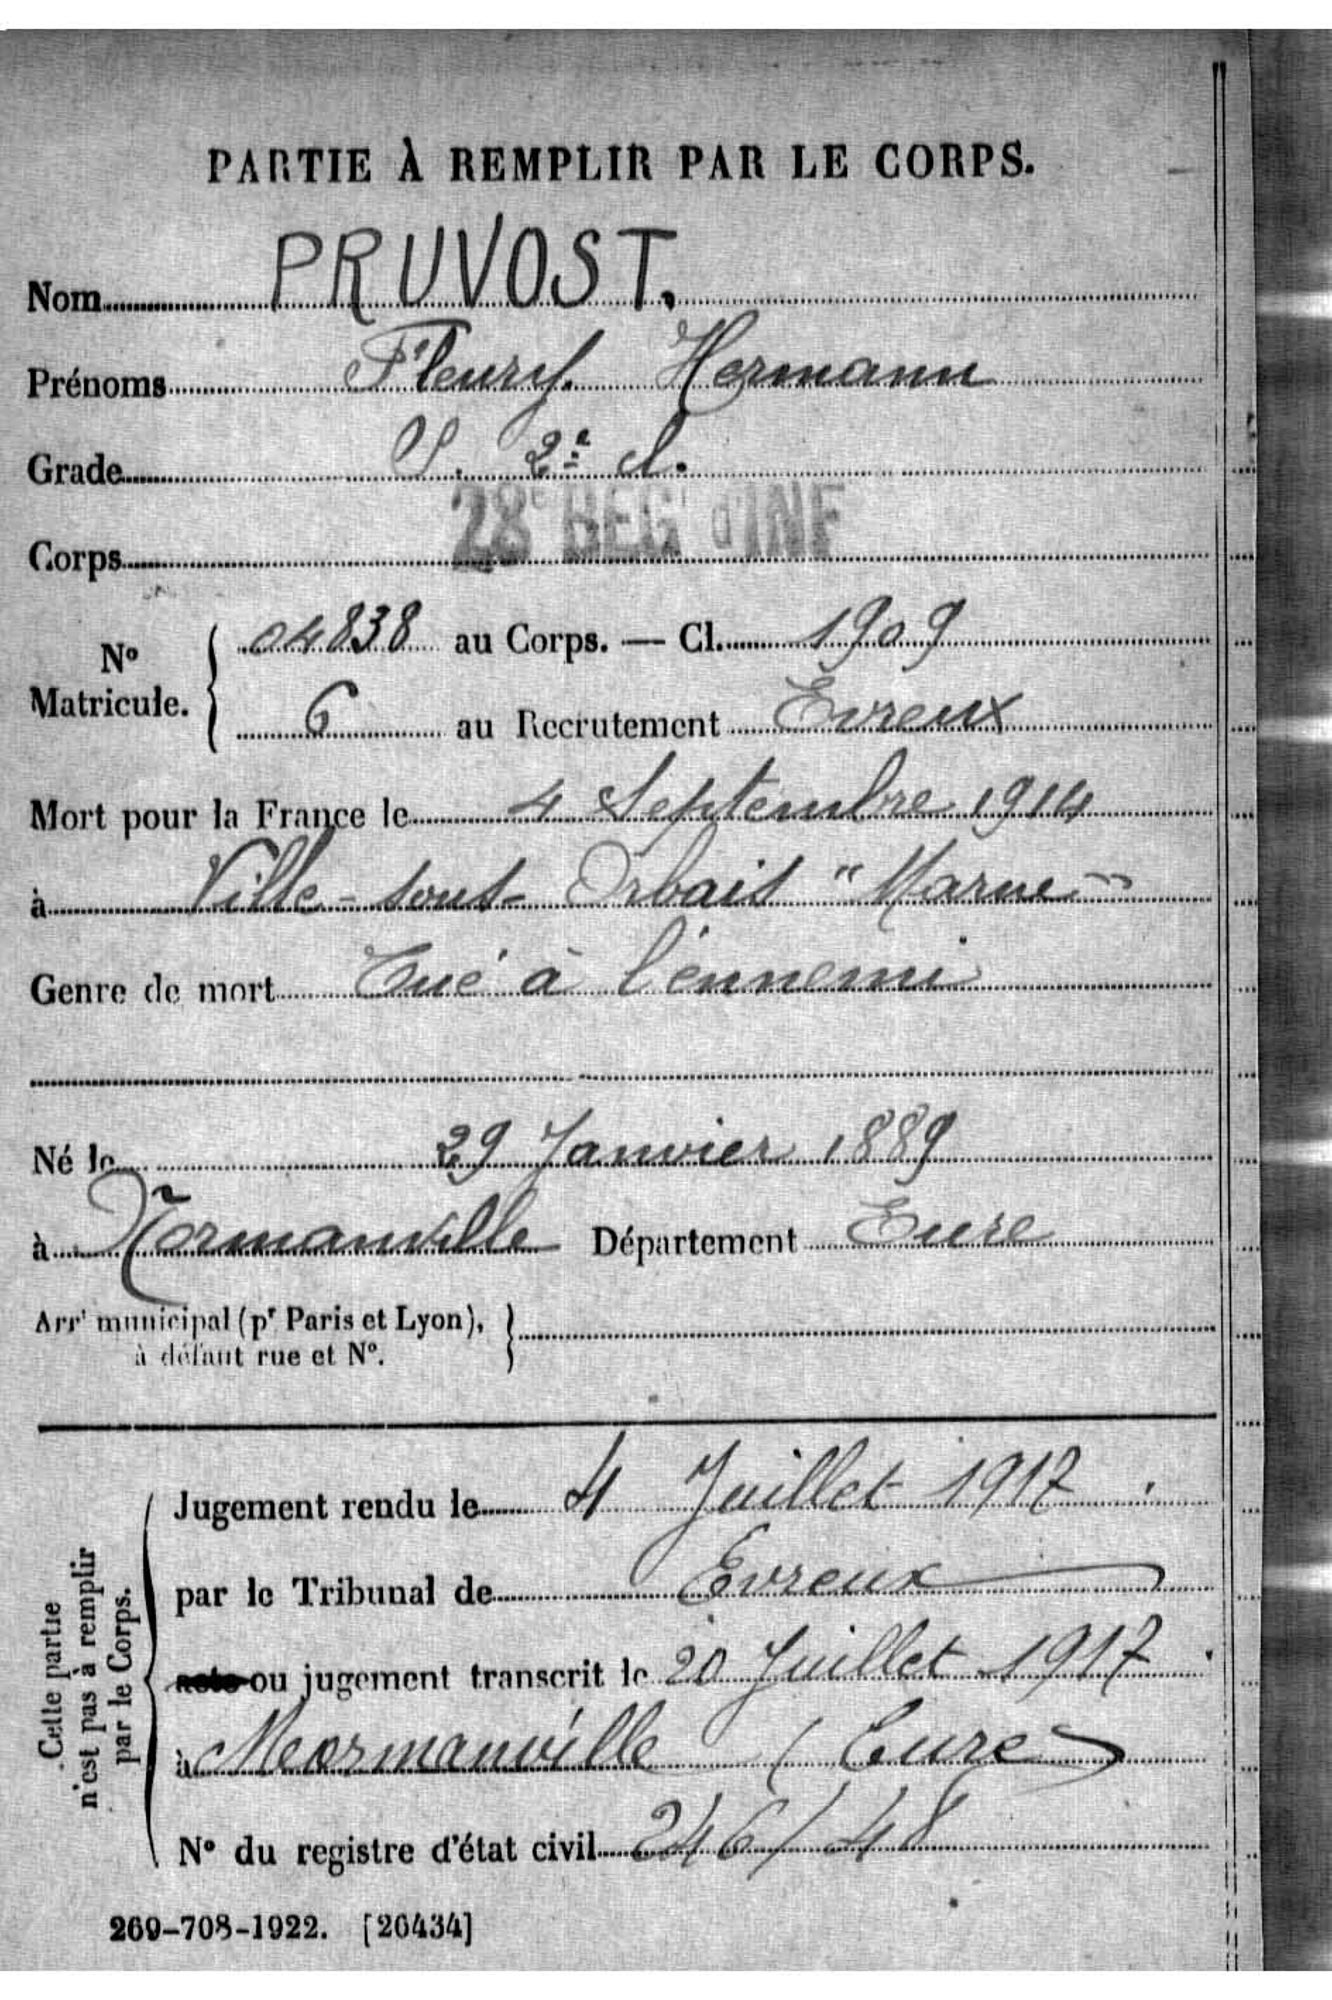 PARTIE À REMPLIR PAR LE CORPS.
Nom PRUVOST.
Prénoms Fleury Hermann
Grade S. 2e cl.
Corps 28e REG d'INF
No Matricule. { 04838 au Corps. — Cl. 1909
6 au Recrutement Evreux
Mort pour la France le 4 Septembre 1914
à Ville-sous-Orbais "Marne"
Genre de mort Tué à l'ennemi
Né le 29 Janvier 1889
à Normanville Département Eure
Arrt municipal (pr Paris et Lyon), à défaut rue et No. }
Cette partie n'est pas à remplir par le Corps.
Jugement rendu le 4 Juillet 1917.
par le Tribunal de Evreux
acte ou jugement transcrit le 20 Juillet 1917.
à Normanville (Eure)
No du registre d'état civil 246/48
269-708-1922. [26434]